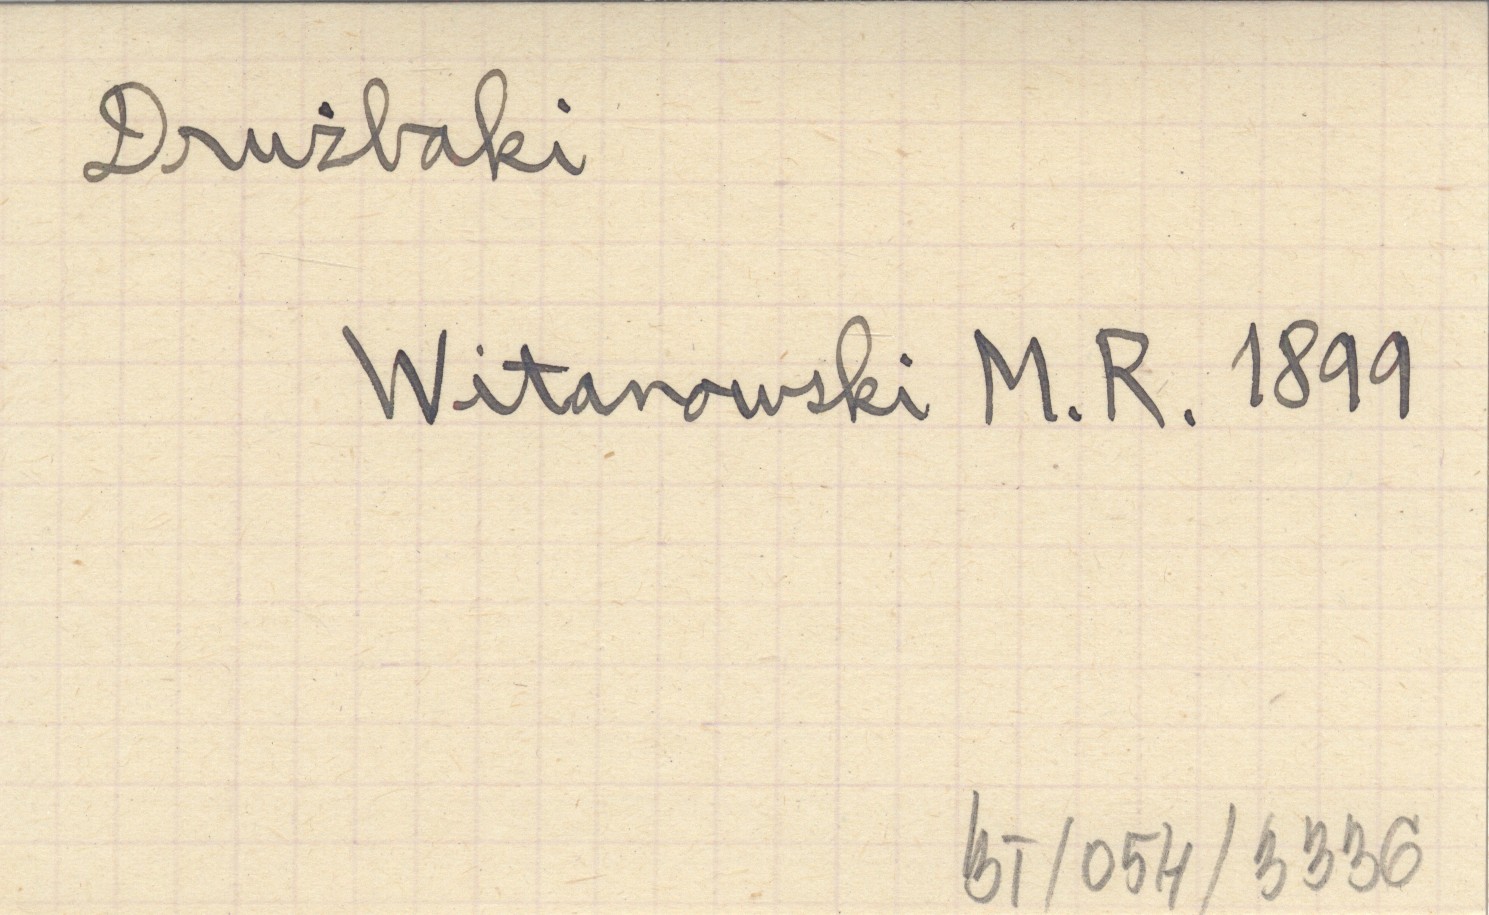 Drużbaki
Witanowski M. R. 1899
BT/054/3336